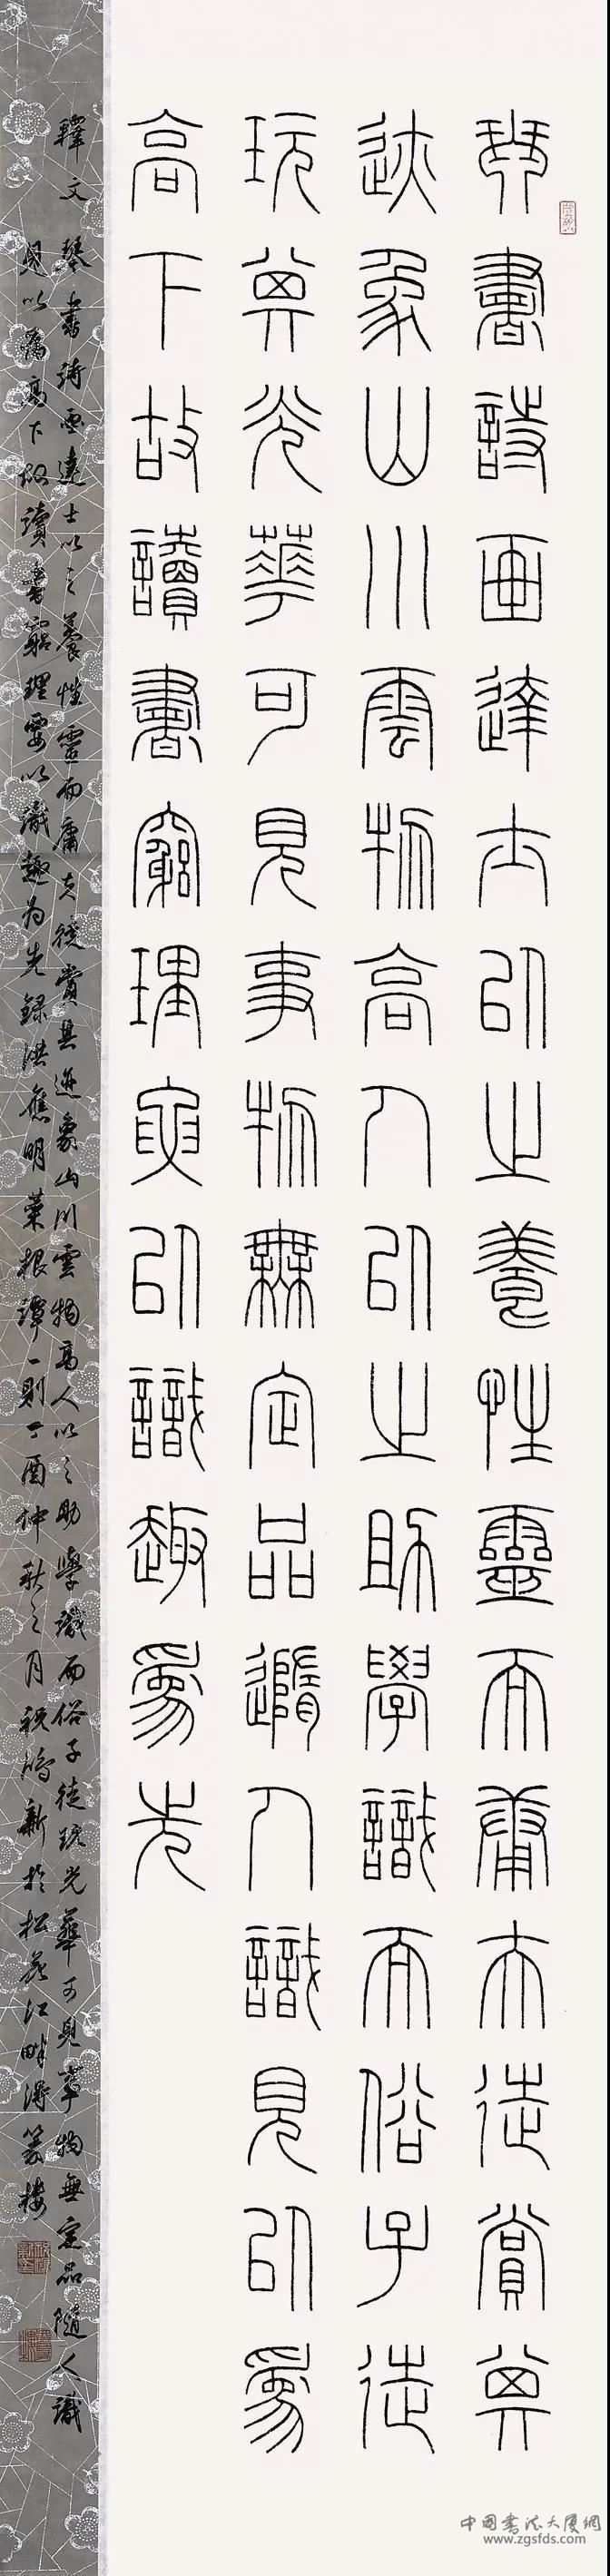 琴書詩畫達士以之養性靈而庸夫徒賞其
迹象山川雲物高人以之助學識而俗子徒
玩其光華可見事物無定品隨人識見以為
高下故讀書窮理要以識趣為先
釋文 琴書詩畫達士以之養性靈而庸夫徒賞其迹象山川雲物高人以之助學識而俗子徒玩光華可見事物無定品隨人識
見以為高下故讀書窮理要以識趣為先錄洪應明菜根譚一則丁酉仲秋之月祝新於松花江畔得篆樓
中國書法大廈網
www.zgsfds.com